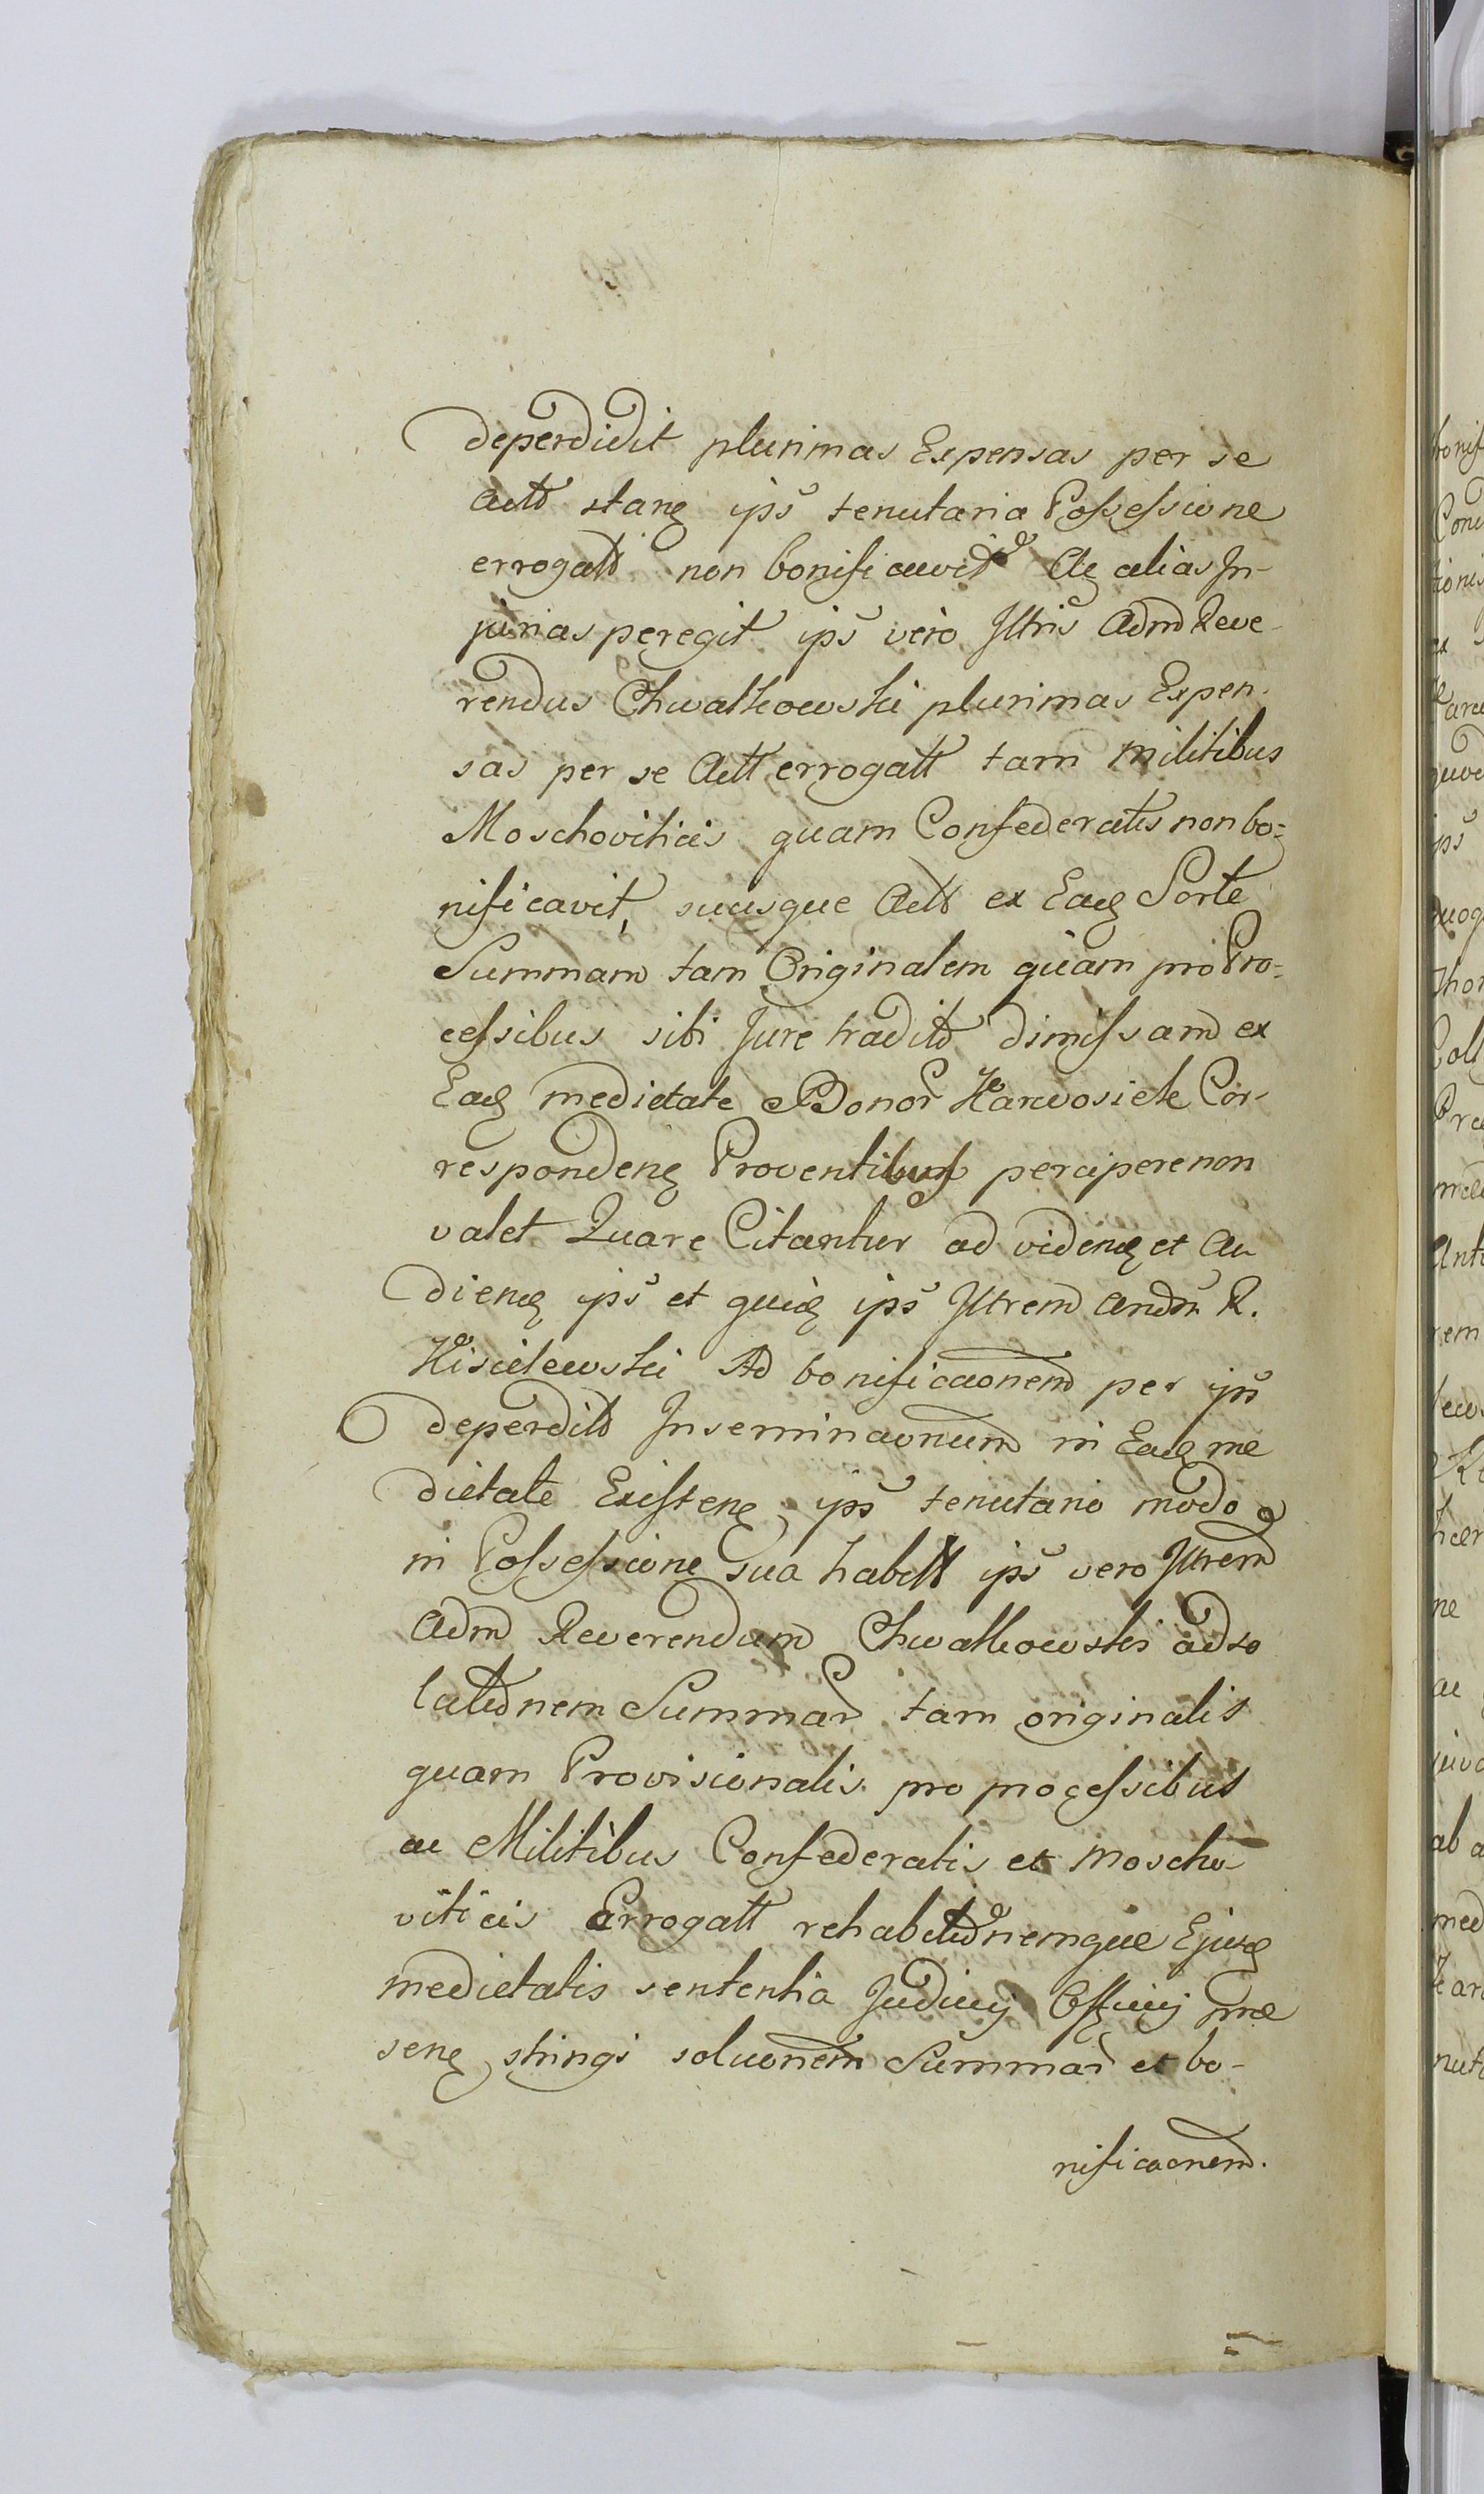 deperdidit plurimas Expensas per se
Actt stanȩ ips tenutaria Possessione
errogatt non bonificavit Ac alias In-
jurias peregit ips vero Jlltris Adm Reve-
rendus Chwalkowski plurimas Expen-
sas per se Actt errogatt tam Militibus
Moschoviticis quam Confederatis non bo=
nificavit, suusque Actt ex Eadȩ Sorte
Summam tam Originalem quam pro Pro=
cessibus sibi Jure tradittt dimissam ex
Eadȩ medietate Bonor Karwosieke Cor-
respondenȩ Proventibus percipere non
valet Quare Citantur ad videnȩ et Au
dienȩ ips et quidȩ ips Jlltrem Andm R.
Kisielewski Ad bonificaonem per ips
deperditt Inseminaonum in Eadȩ me
dietate Existenȩ, ips tenutario modo
in Possessione sua habitt ips vero Jlltrem
Adm Reverendum Chwalkowski ad so
lutionem Summar tam originalis
quam Provisionalis pro processibus
ac Militibus Confederatis et Moscho-
viticis Errogatt rehabitionemque Ejusdȩ
medietatis sententia Judicij Officij præ
senȩ stringi soluonem Summar et bo-
nificaonem.